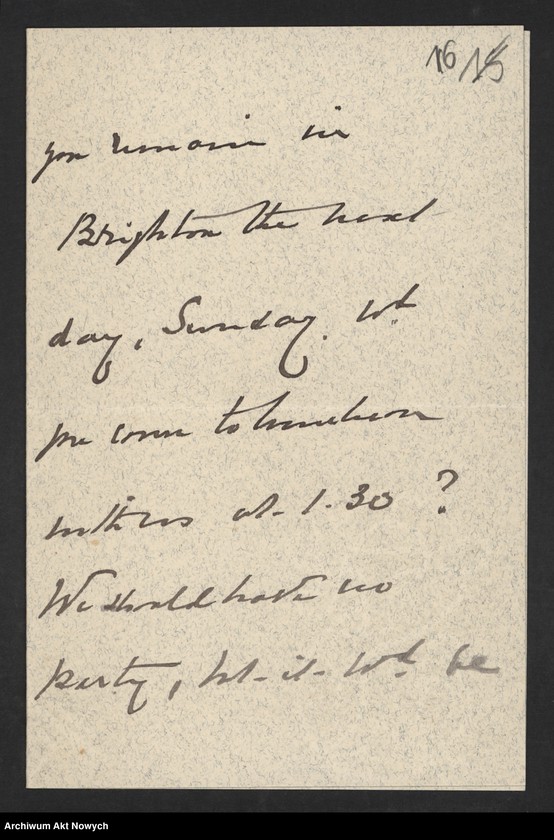 16/15
you remain in
Brighton the next
day, Sunday. wd
you come to luncheon
with us at 1.30 ?
We should have no
party, but it wd be
Archiwum Akt Nowych